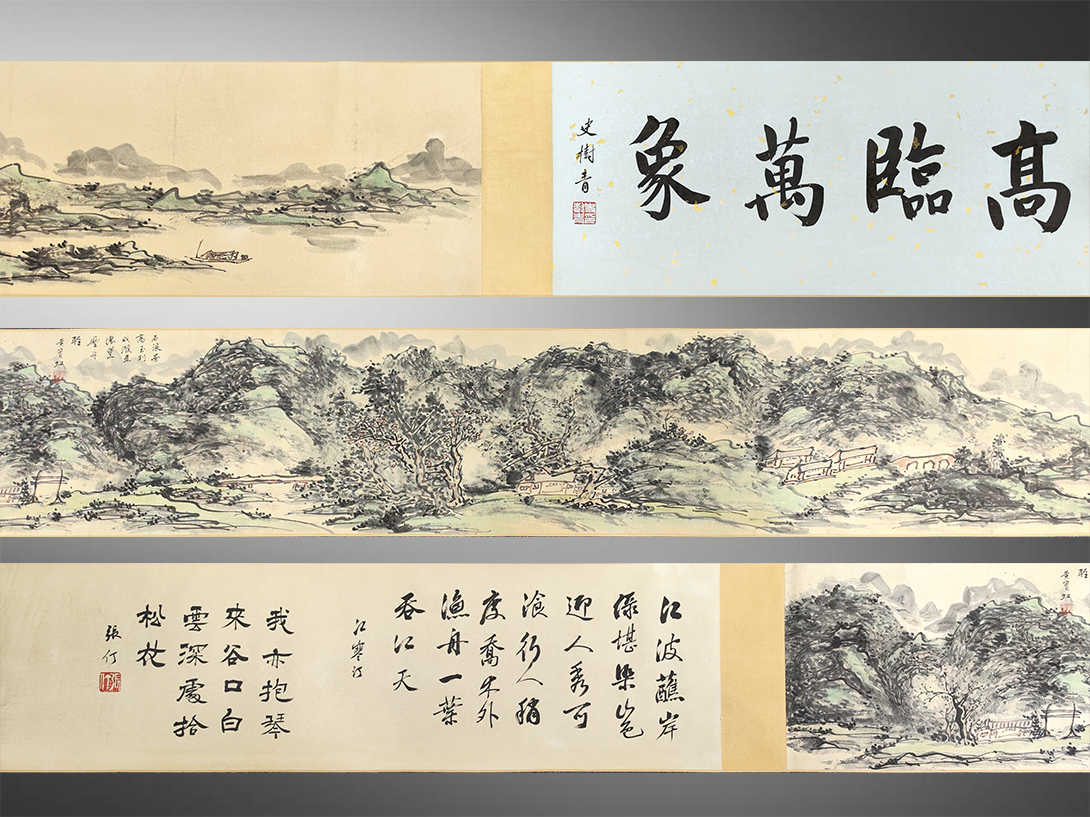 髙臨萬象
史樹青
黃賓虹
黃賓虹
江波蘸岸
綠堪染山色
迎人秀可
飡行人稍
度喬木外
漁舟一葉
吞江天
江寒汀
我亦抱琴
來谷口白
雲深處拾
松花
張仃